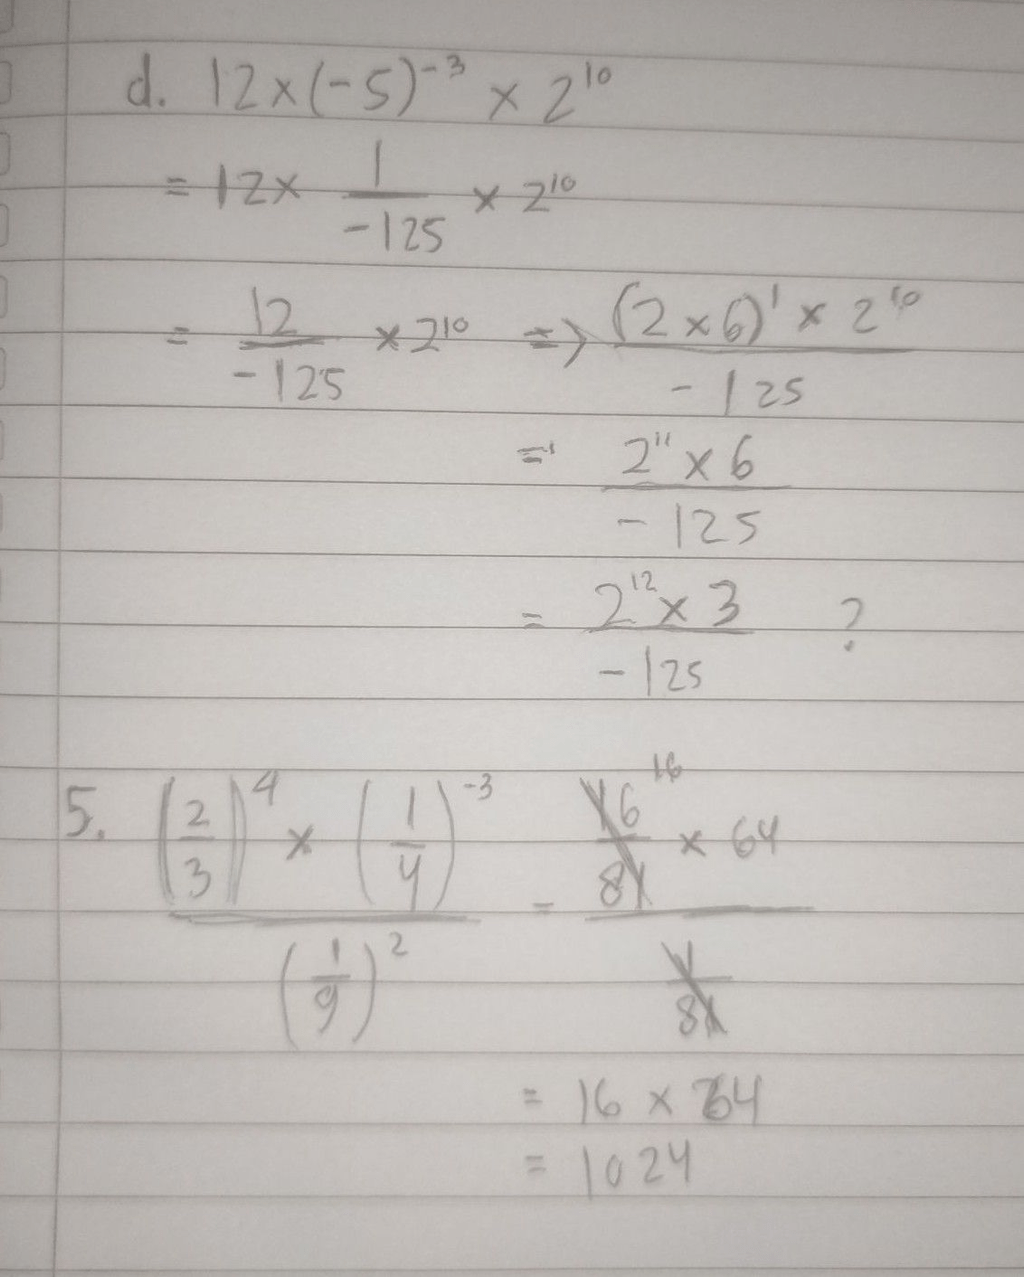 d. 12 × (-5)⁻³ × 2¹⁰
= 12 × 1/-125 × 2¹⁰
= 12/-125 × 2¹⁰ => (2 × 6)¹ × 2¹⁰/-125
= 2¹¹ × 6/-125
= 2¹² × 3/-125 ?
5. (2/3)⁴ × (1/4)⁻³/(1/9)² = 16/81 16 × 64/1/81
= 16 × 64
= 1024